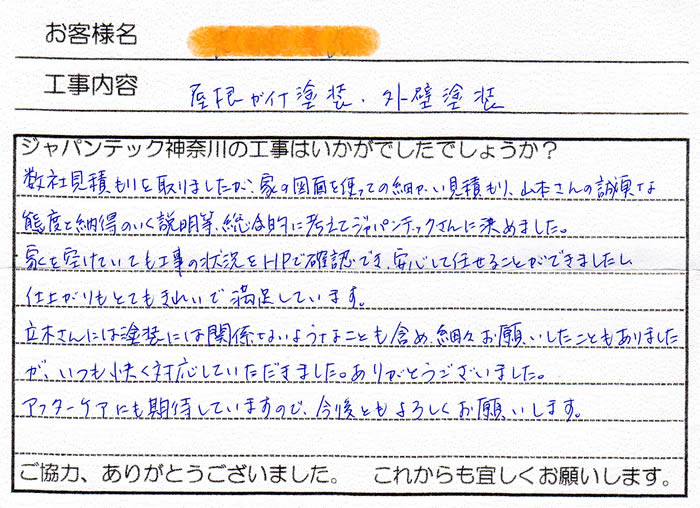 お客様名
工事内容
屋根ガイナ塗装・外壁塗装
ジャパンテック神奈川の工事はいかがでしたでしょうか？
数社見積もりを取りましたが、家の図面を使っての細かい見積もり、山本さんの誠実な
態度と納得のいく説明等、総合的に考えてジャパンテックさんに決めました。
家を空けていても工事の状況をHPで確認でき、安心して任せることができましたし
仕上がりもとてもきれいで満足しています。
立木さんには塗装には関係ないようなことも含め、細々お願いしたこともありました
が、いつも快く対応していただきました。ありがとうございました。
アフターケアにも期待していますので、今後ともよろしくお願いします。
ご協力、ありがとうございました。 これからも宜しくお願いします。